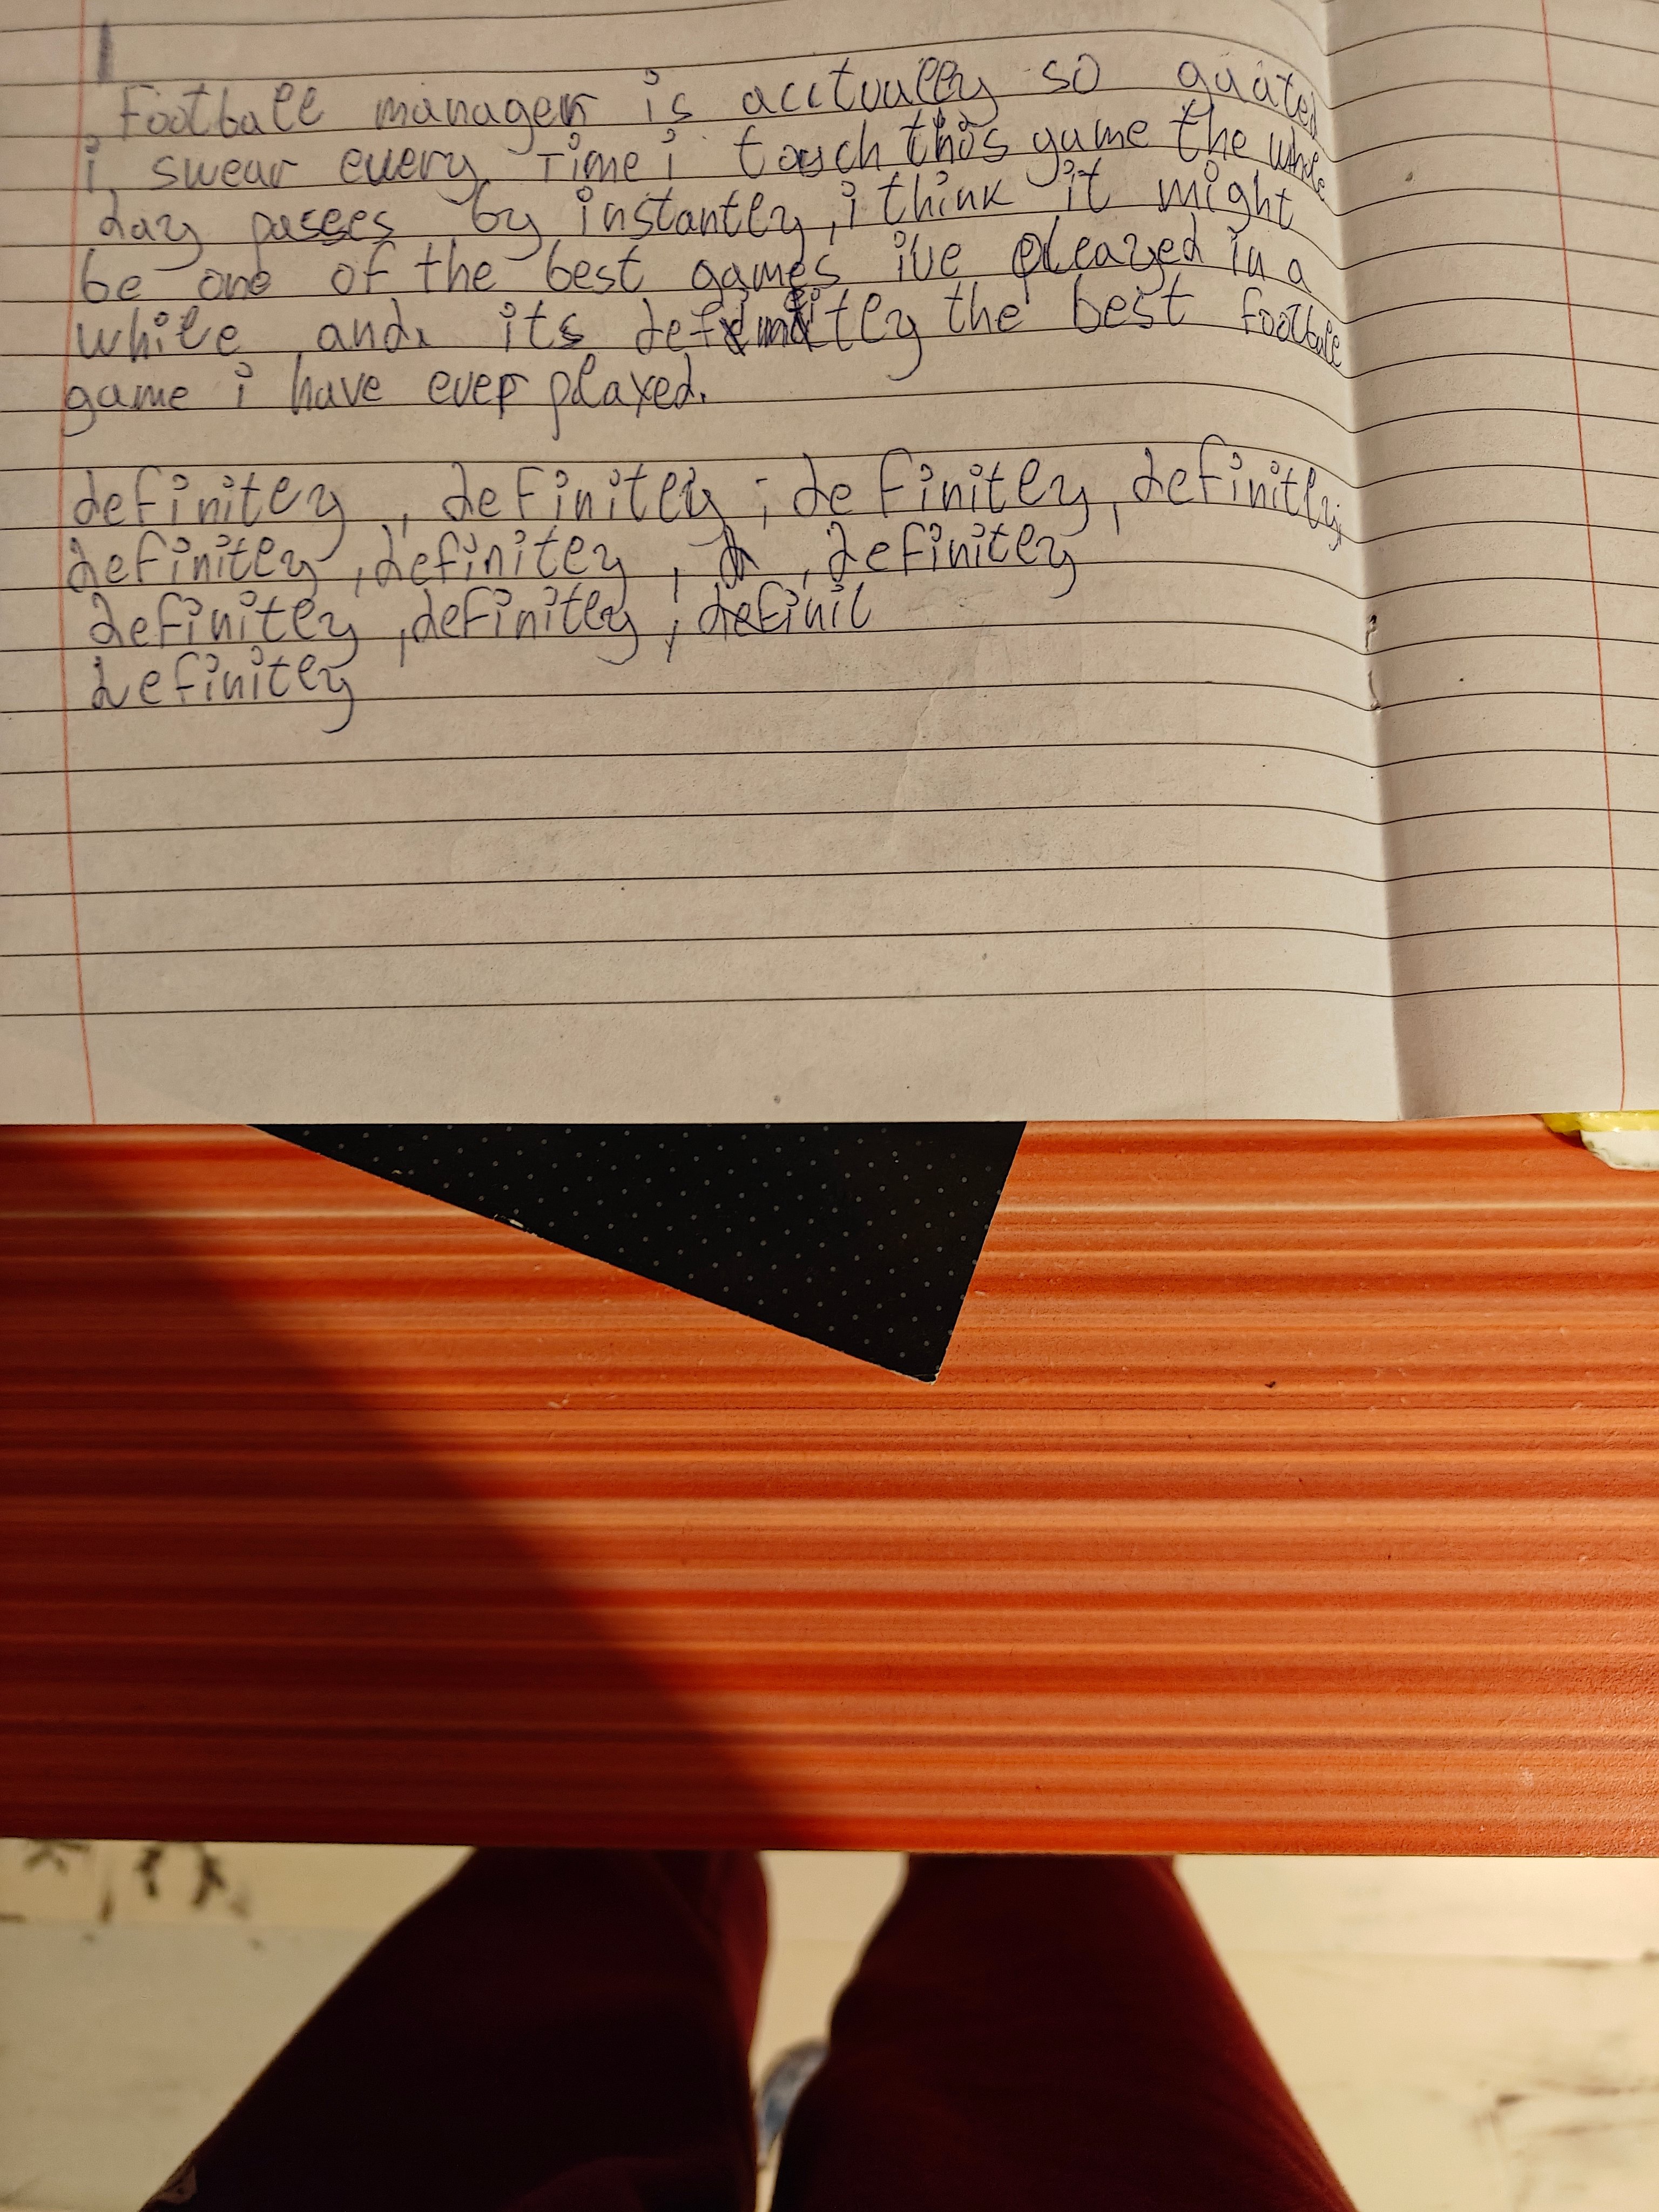 Football manager is acctually so guated
i swear every time i touch this game the whole
day passes by instantly, i think it might
be one of the best games i've pleayed in a
while and its definitly the best football
game i have ever played.
definitly, definitly, definitly, definitly,
definitly, definitly, d, definitly
definitly, definitly, definil
definitly